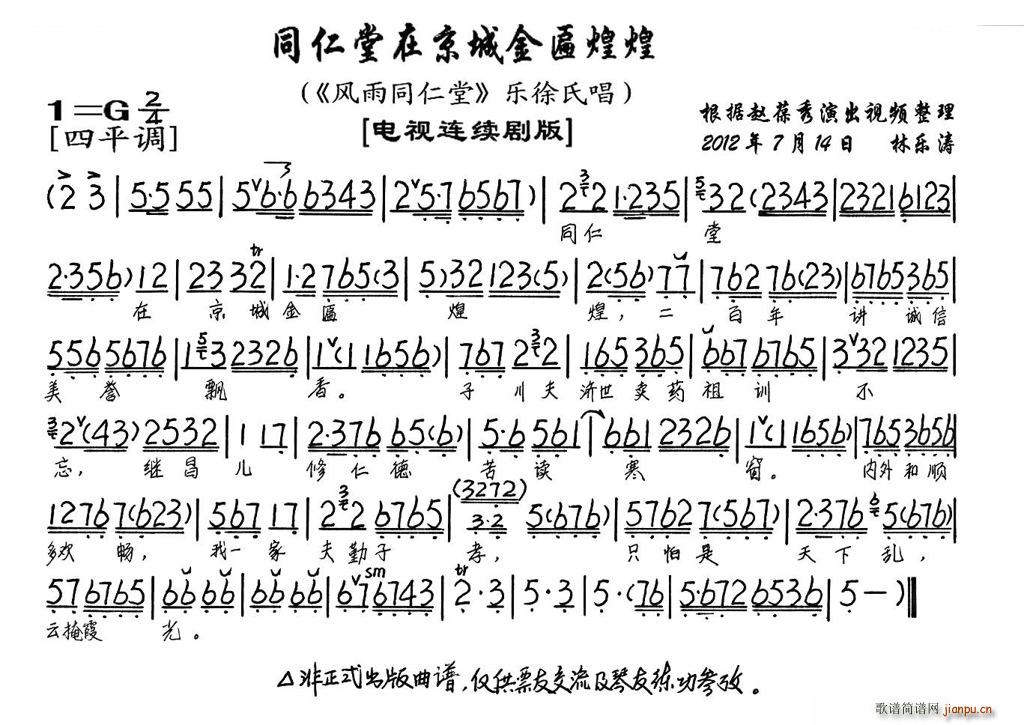 同仁堂在京城金匾煌煌
(《风雨同仁堂》乐徐氏唱)
1=G 2/4
[四平调]
[电视连续剧版]
根据赵葆秀演出视频整理
2012年7月14日 林乐涛
(2 3 | 5·5 55 | 5 6·6 6343 | 2 5·7 6567) | 2 2 1·235 | 32 (2343 | 2321 6123 |
同仁 堂
2·356) 12 | 23 32 | 1·2 765(3 | 5) 32 123(5) | 2(56) 77 | 762 76(23) | 6765 365 |
在 京城金匾 煌 煌,二 百年 讲 诚信
556 5676 | 1 3 2326 | 1 (1 1656) | 767 2 2 | 165 365 | 667 6765 | 3 32 1235 |
美誉 飘 香。 子川夫济世卖药祖训 不
2 (43) 2532 | 1 17 | 2·376 65(6) | 5·6 561 | 661 2326 | 1 (1 1656) | 765 3656 |
忘, 继昌儿 修仁德 苦读 寒 窗。 内外和顺
1276 7(623) | 567 17 | 2 2 6765 | (3272) 3·2 5(676) | 5762 7(567) | 2·376 5(676) |
多欢 畅, 我一家 夫勤子 孝, 只怕是 天下乱,
57 6765 | 66 66 | 66 66 | 676743 | 2·3 | 5·3 | 5·(76 | 5·672 6536 | 5 — ) ‖
tr
sm
云掩霞 光。
△非正式出版曲谱,仅供票友交流及琴友练功参考。
歌谱简谱网
jianpu.cn